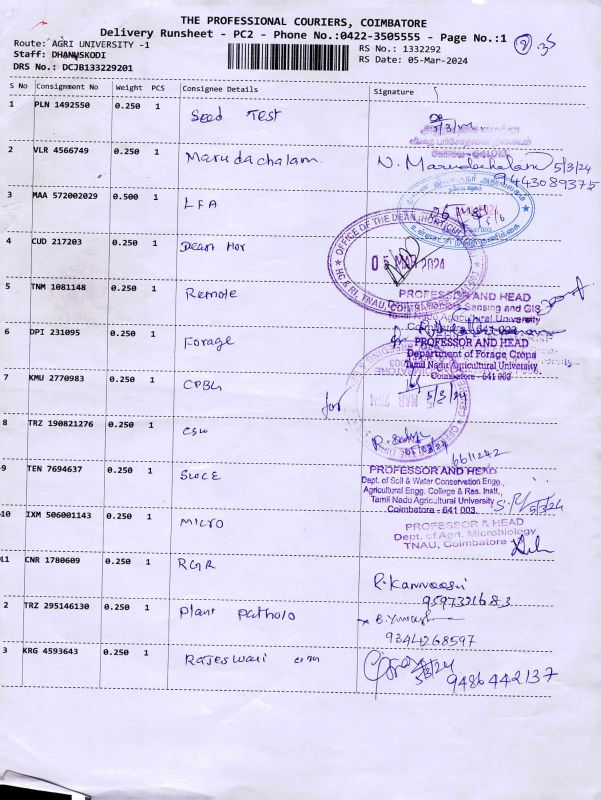 THE PROFESSIONAL COURIERS, COIMBATORE
Delivery Runsheet - PC2 - Phone No.:0422-3505555 - Page No.:1
Route: AGRI UNIVERSITY -1
RS No.: 1332292
Staff: DHANUSKODI
RS Date: 05-Mar-2024
DRS No.: DCJB133229201
S No Consignment No Weight PCS Consignee Details Signature
1 PLN 1492550 0.250 1 Seed Test
2 VLR 4566749 0.250 1 Marudachalam. N. Marudachalam 5/3/24
9443089375
3 MAA 572002029 0.500 1 LFA
4 CUD 217203 0.250 1 Dean Hor
OFFICE OF THE DEAN (HORT)
05 MAR 2024
5 TNM 1081148 0.250 1 Remote
PROFESSOR AND HEAD
Sensing and GIS
Tamil Nadu Agricultural University
641 003
6 DPI 231095 0.250 1 Forage
PROFESSOR AND HEAD
Department of Forage Crops
Tamil Nadu Agricultural University
Coimbatore - 641 003
7 KMU 2770983 0.250 1 CPBG
for 5/3/24
8 TRZ 190821276 0.250 1 CSW
05/03/24
6611242
9 TEN 7694637 0.250 1 SWCE
PROFESSOR AND HEAD
Dept. of Soil & Water Conservation Engg.,
Agricultural Engg. College & Res. Instt.,
Tamil Nadu Agricultural University
Coimbatore - 641 003
5/3/24
10 IXM 506001143 0.250 1 MICRO
PROFESSOR & HEAD
Dept. of Agrl. Microbiology
TNAU, Coimbatore
11 CNR 1780609 0.250 1 RGR
R. Kannoosi
9597321683
2 TRZ 295146130 0.250 1 Plant Patholo
9344268597
3 KRG 4593643 0.250 1 Rajeswari
5/3/24
9486442137